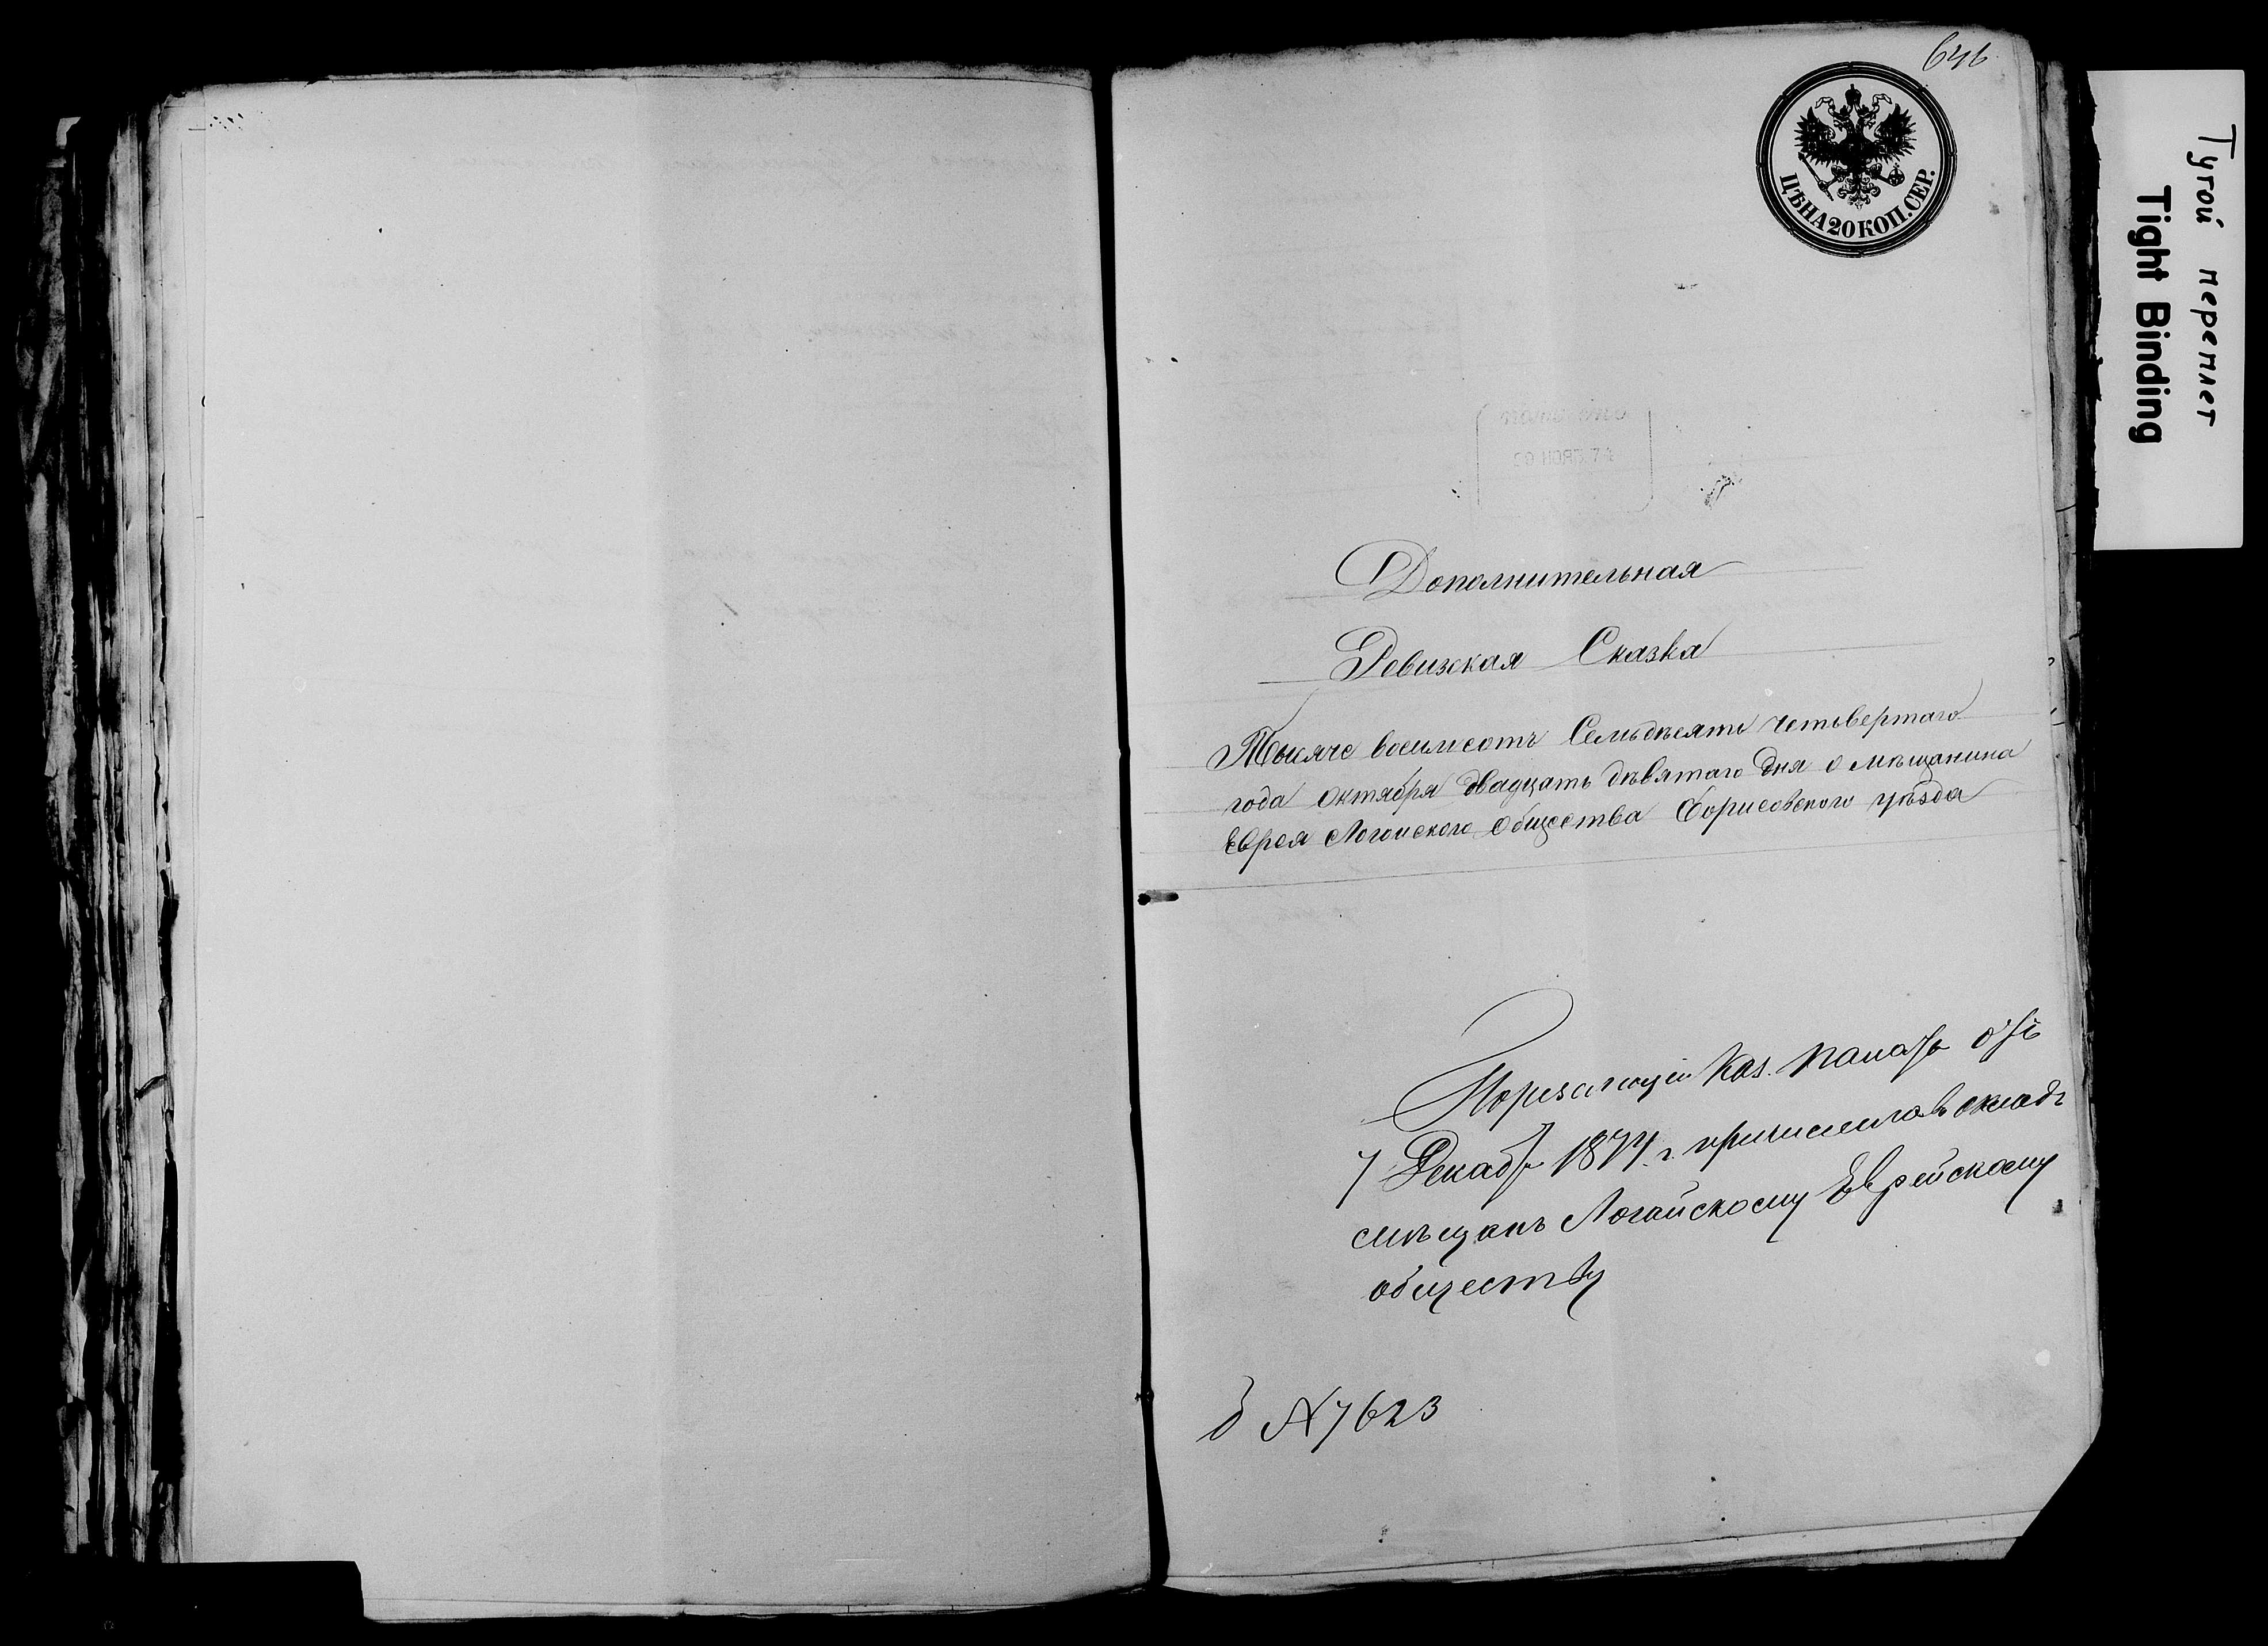 646
ЦѢНА 20 КОП. СЕР.
Тугой переплет
Tight Binding
Дополнительная
Ревизская Сказка
Тысяче восемсотъ Семьдѣсять четьвертаго
года Октября двадцать дѣвятаго Дня о мѣщанина
Еврея Логойского Общества Борисовского уѣзда
Каз. Палаты отъ
7 Декабр 1874 г. в окладъ
мѣщанъ Логойскому Еврейскому
обществу
N 7623